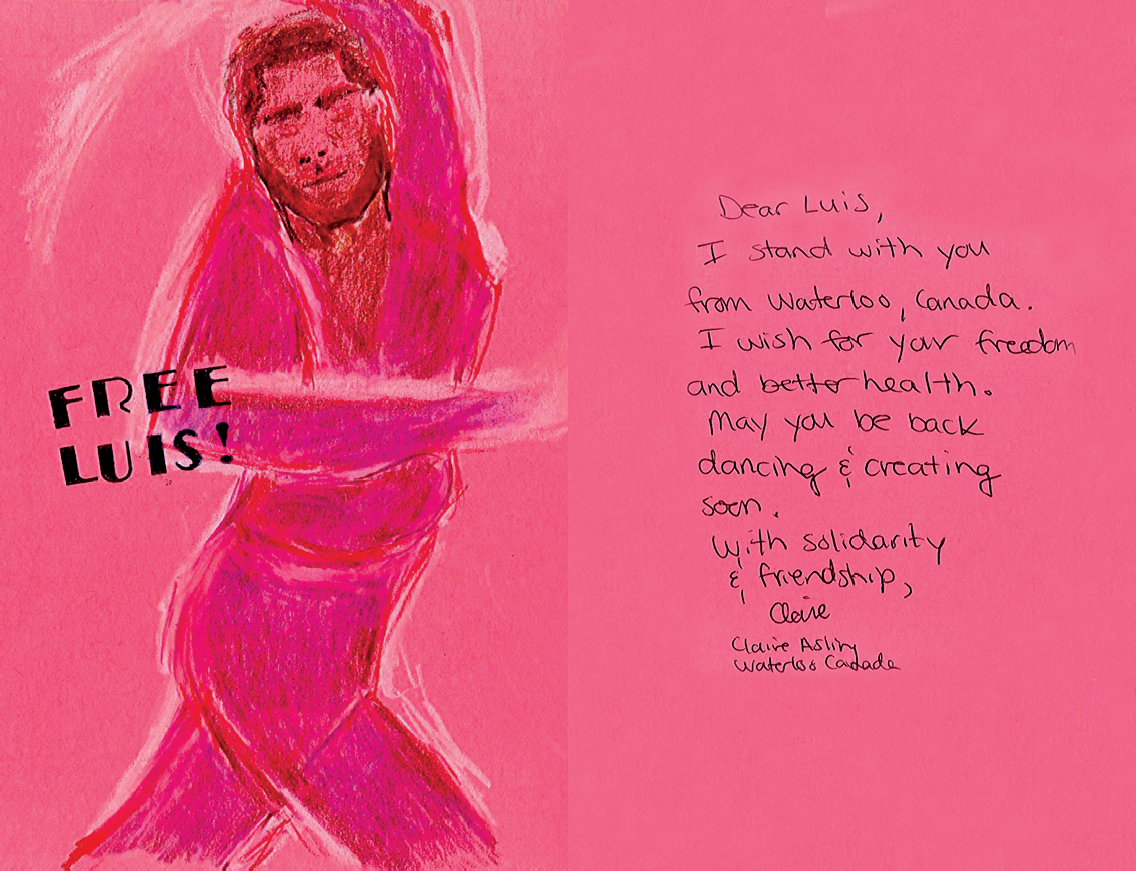 FREE
LUIS!
Dear Luis,
I stand with you
from Waterloo, Canada.
I wish for your freedom
and better health.
May you be back
dancing & creating
soon.
With solidarity
& friendship,
Claire
Claire
Waterloo Canada